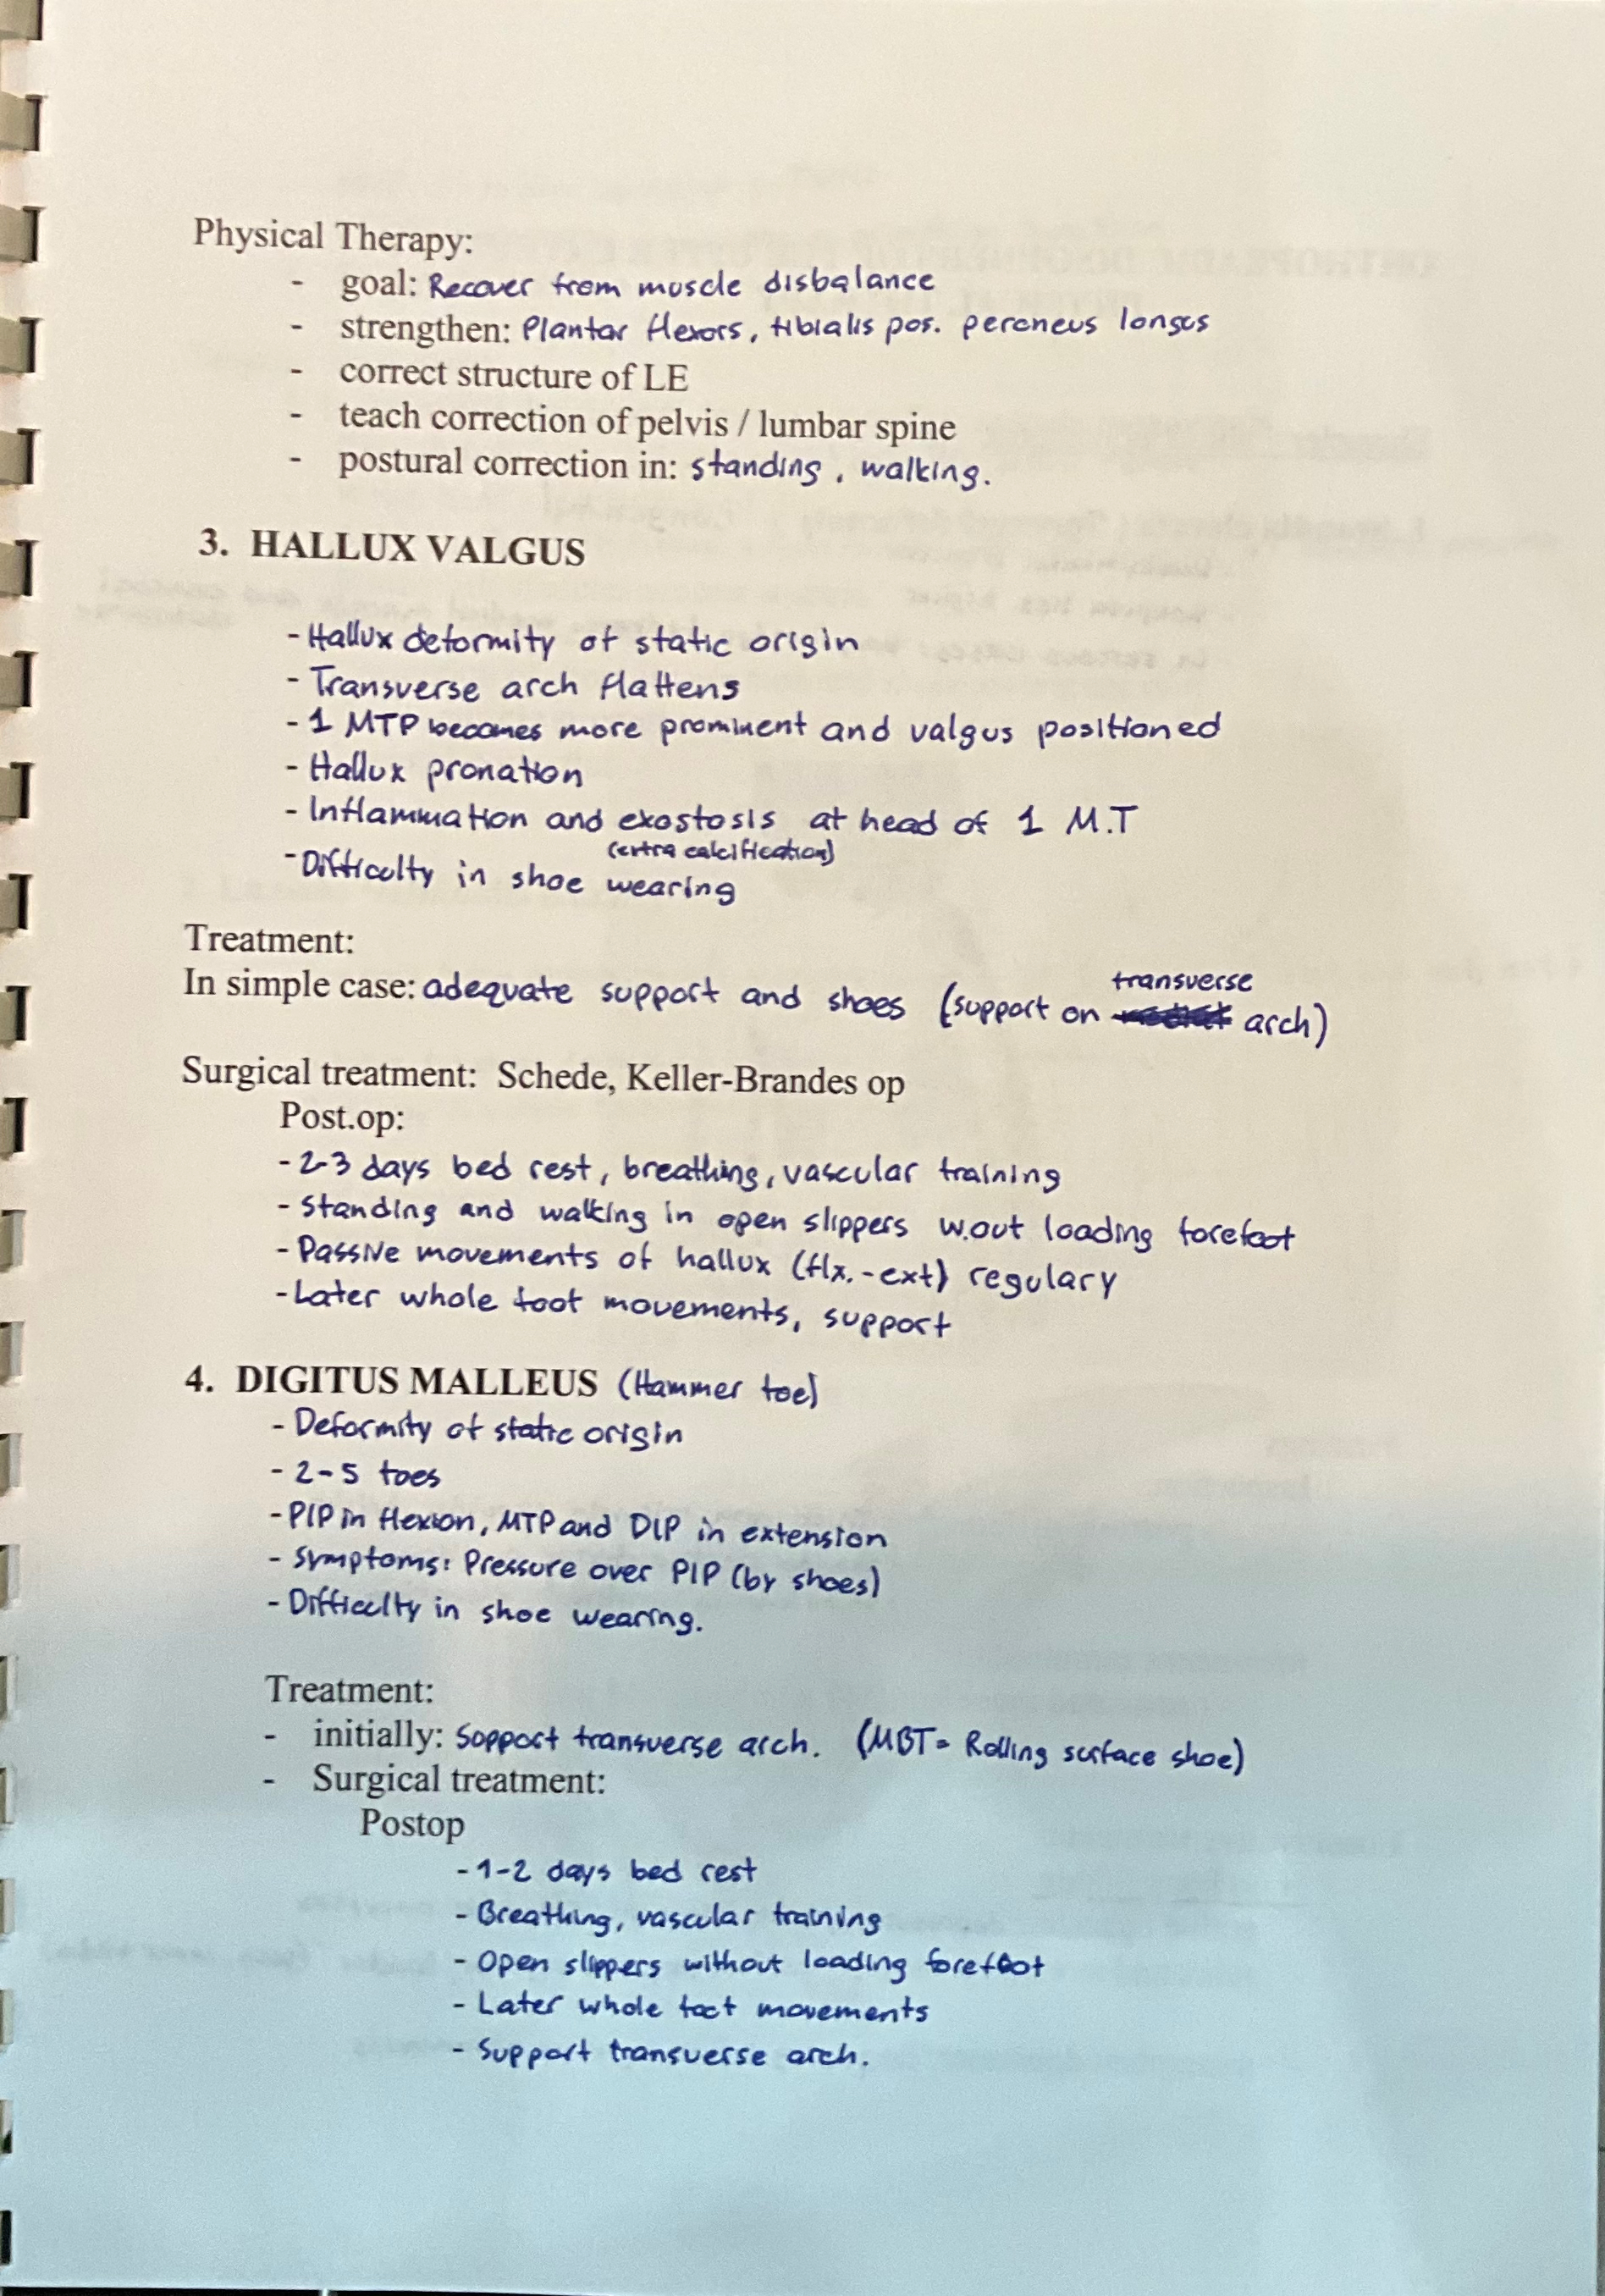 Physical Therapy:
- goal: Recover from muscle disbalance
- strengthen: Plantar flexors, tibialis pos. peroneus longus
- correct structure of LE
- teach correction of pelvis / lumbar spine
- postural correction in: standing, walking.
3. HALLUX VALGUS
- Hallux deformity of static origin
- Transverse arch flattens
- 1 MTP becomes more prominent and valgus positioned
- Hallux pronation
- Inflammation and exostosis at head of 1 M.T
(extra calcification)
- Difficulty in shoe wearing
Treatment:
transverse
In simple case: adequate support and shoes (support on arch)
Surgical treatment: Schede, Keller-Brandes op
Post.op:
- 2-3 days bed rest, breathing, vascular training
- Standing and walking in open slippers w.out loading forefoot
- Passive movements of hallux (flx.-ext) regulary
- Later whole foot movements, support
4. DIGITUS MALLEUS (Hammer toe)
- Deformity of static origin
- 2-5 toes
- PIP in flexion, MTP and DIP in extension
- Symptoms: Pressure over PIP (by shoes)
- Difficulty in shoe wearing.
Treatment:
- initially: Support transverse arch. (MBT = Rolling surface shoe)
- Surgical treatment:
Postop
- 1-2 days bed rest
- Breathing, vascular training
- Open slippers without loading forefoot
- Later whole foot movements
- Support transverse arch.